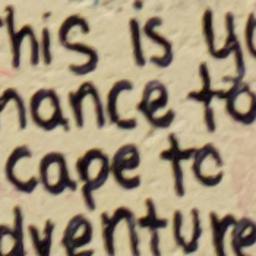 his is yo
nance to
cape to
dventure